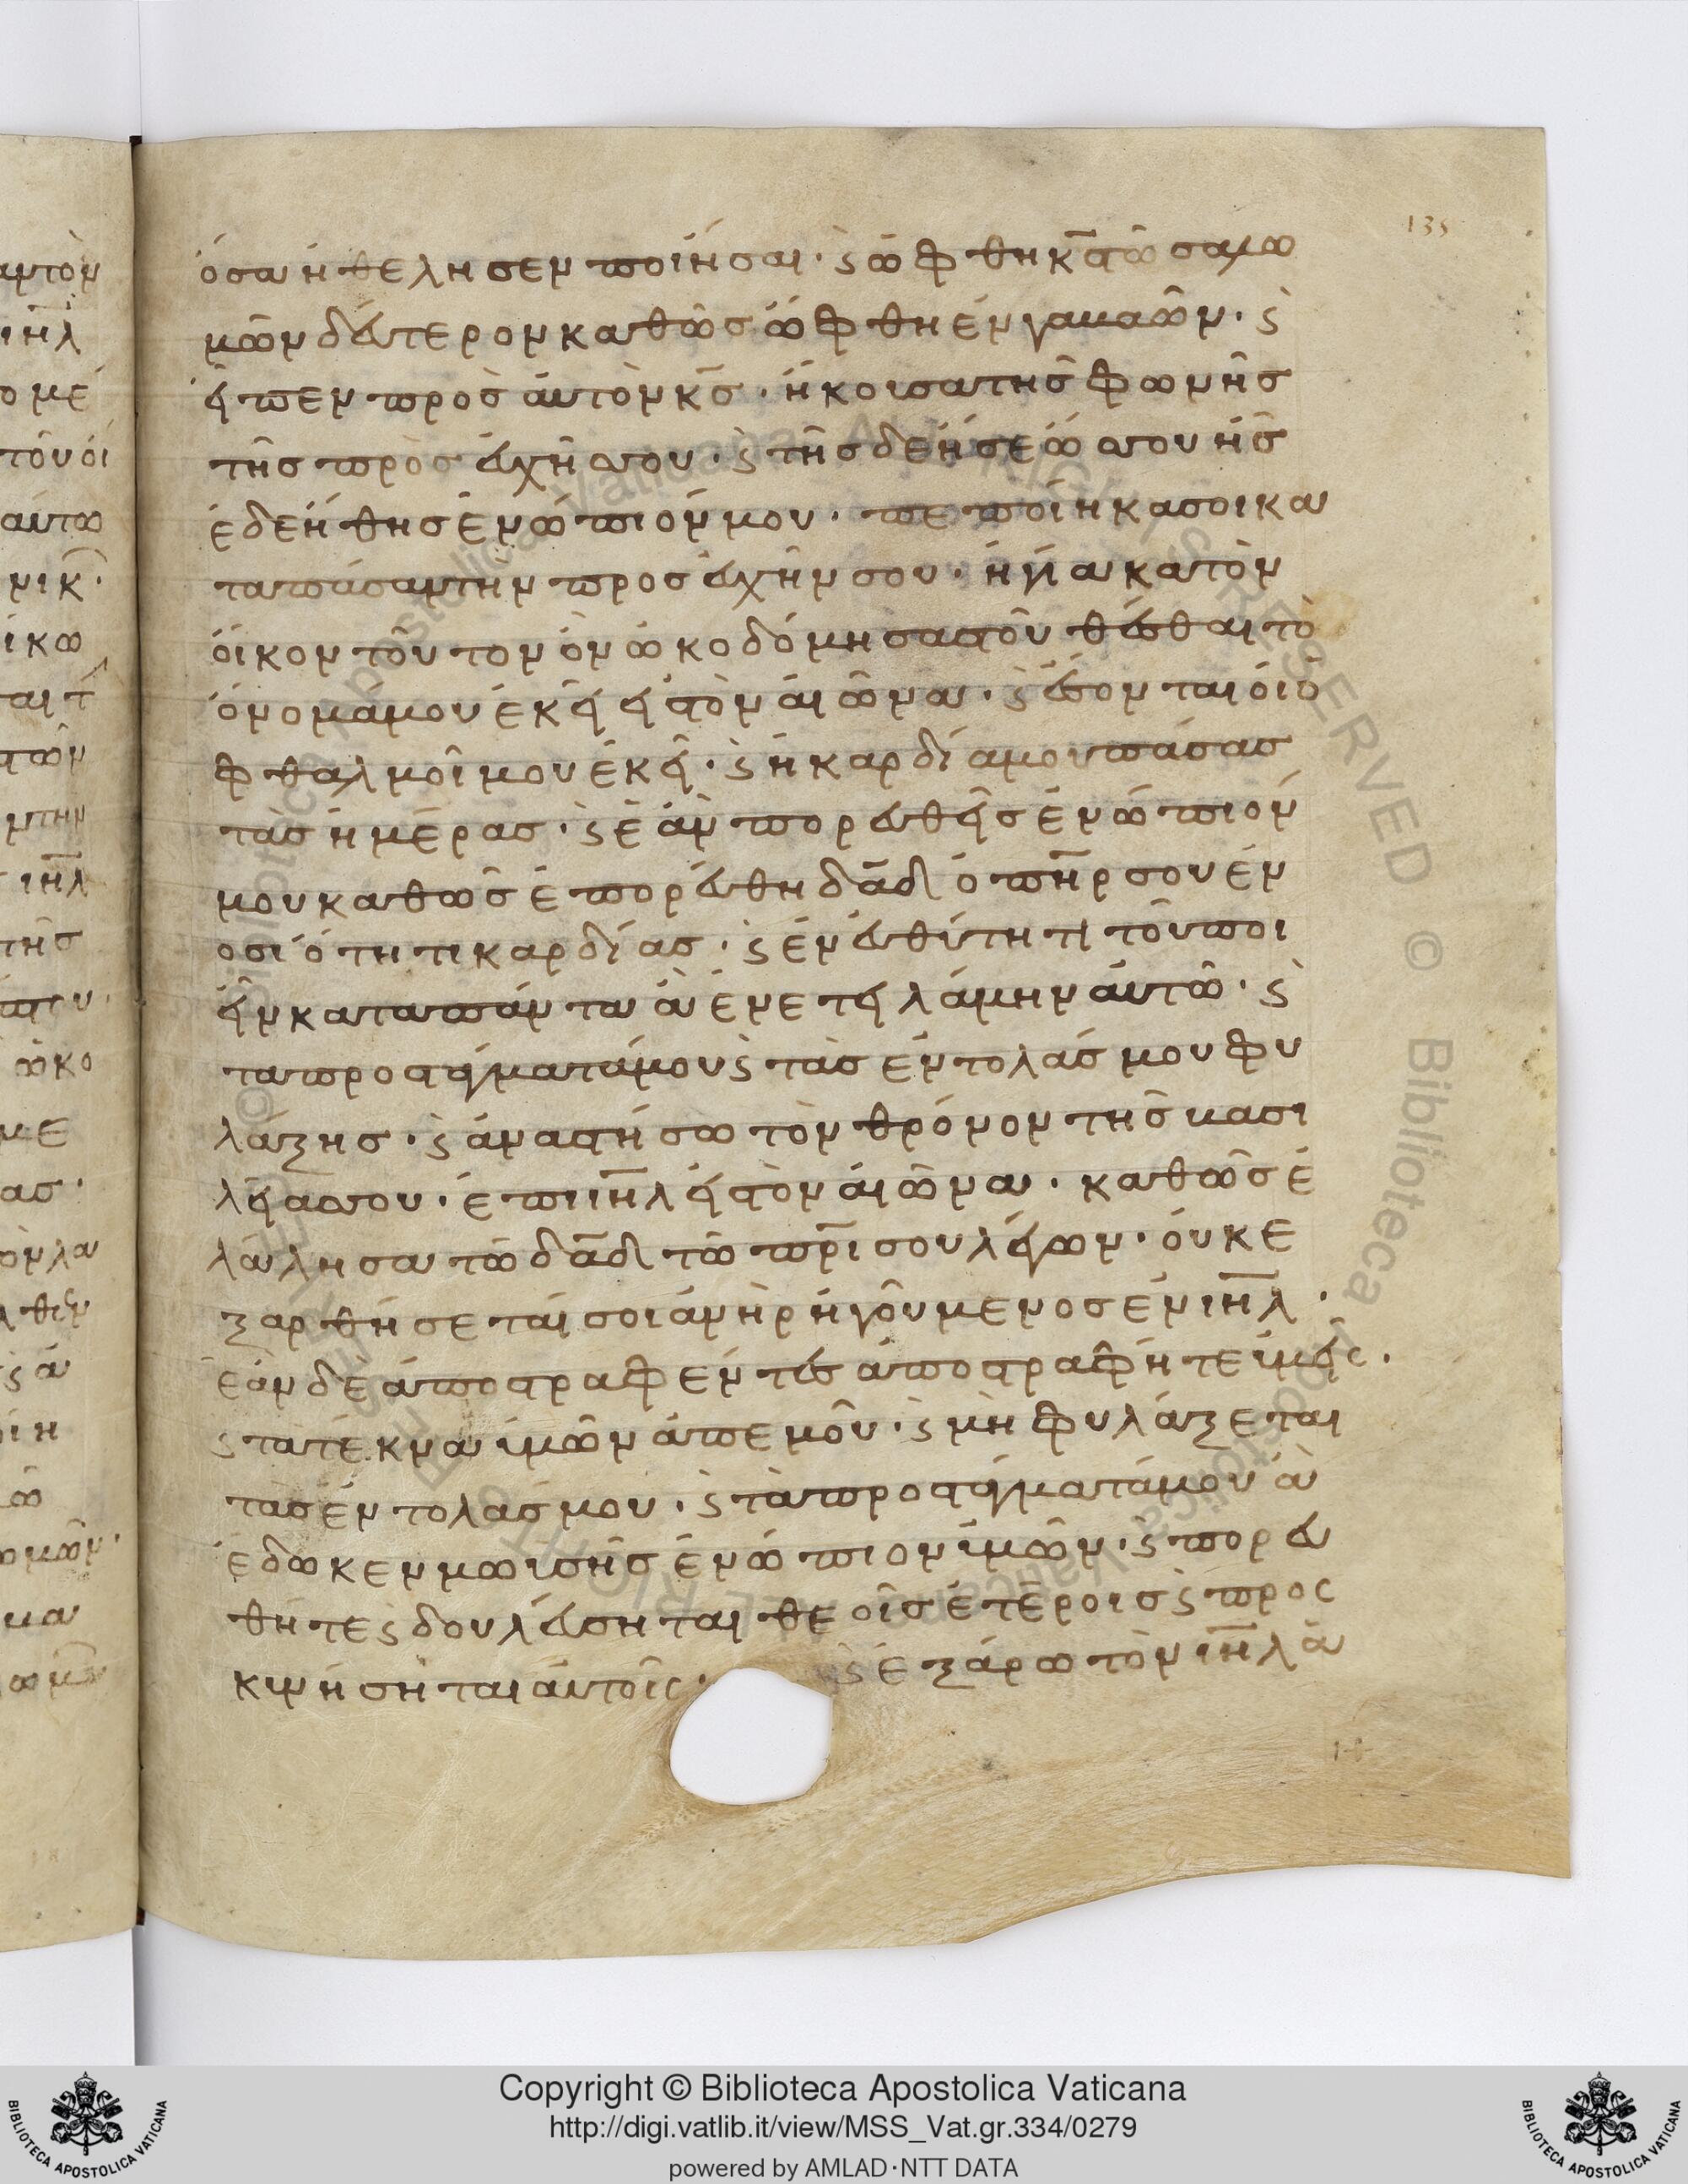 135
ὅσα ἠθέλησεν ποιῆσαι· ϛ ὤφθη κ̅ς τῶ σαλω
μῶν δεύτερον καθὼς ὤφθη ἐν γαβαῶν· ϛ
εἶπεν πρὸς αὐτὸν κ̅ς· ἤκουσα τῆς φωνῆς
τῆς προσευχῆς σου· ϛ τῆς δεήσεώς σου ἧς
ἐδεήθης ἐνώπιόν μου· πεποίηκά σοι κα
τα πᾶσαν τὴν προσευχήν σου· ἡγίακα τὸν
οἶκον τοῦτον ὃν ὠκοδόμησας τοῦ θέσθαι τὸ
ὄνομά μου ἐκεῖ εἰς τὸν αἰῶνα· ϛ ἔσονται οἱ ὀ
φθαλμοί μου ἐκεῖ· ϛ ἡ καρδία μου πάσας
τὰς ἡμέρας· ϛ ἐὰν πορευθεῖς ἐνώπιόν
μου καθὼς ἐπορεύθη δα̅δ ὁ πη̅ρ σου ἐν
οσιότητι καρδίας· ϛ ἐν εὐθύτητι τοῦ ποι
εῖν κατα πάντα ἃ ἐνετειλάμην αὐτῶ· ϛ
τα προστάγματά μου ϛ τὰς ἐντολάς μου φυ
λάξης· ϛ ἀναστήσω τὸν θρόνον τῆς βασι
λείας σου· ἐπι ιη̅λ εἰς τὸν αἰῶνα· καθὼς ἐ
λάλησα τῶ δα̅δ τῶ πρ̅ι σου λέγων· οὐκ ε
ξαρθήσεταί σοι ἀνὴρ ἡγούμενος ἐν ιη̅λ·
ἐὰν δὲ ἀποστραφέντες ἀποστραφῆτε ὑμεῖς·
ϛ τὰ τέκνα ὑμῶν ἀπ εμοῦ· ϛ μὴ φυλάξεται
τὰς ἐντολάς μου· ϛ τὰ προστάγματά μου ἃ
ἔδωκεν μωυσῆς ἐνώπιον ὑμῶν· ϛ πορευ
θῆτε ϛ δουλεύσηται θεοῖς ἑτέροις ϛ προς
κυνήσηται αὐτοῖς· ϛ ἐξάρω τὸν ιη̅λ ἀ
Copyright © Biblioteca Apostolica Vaticana
http://digi.vatlib.it/view/MSS_Vat.gr.334/0279
powered by AMLAD·NTT DATA